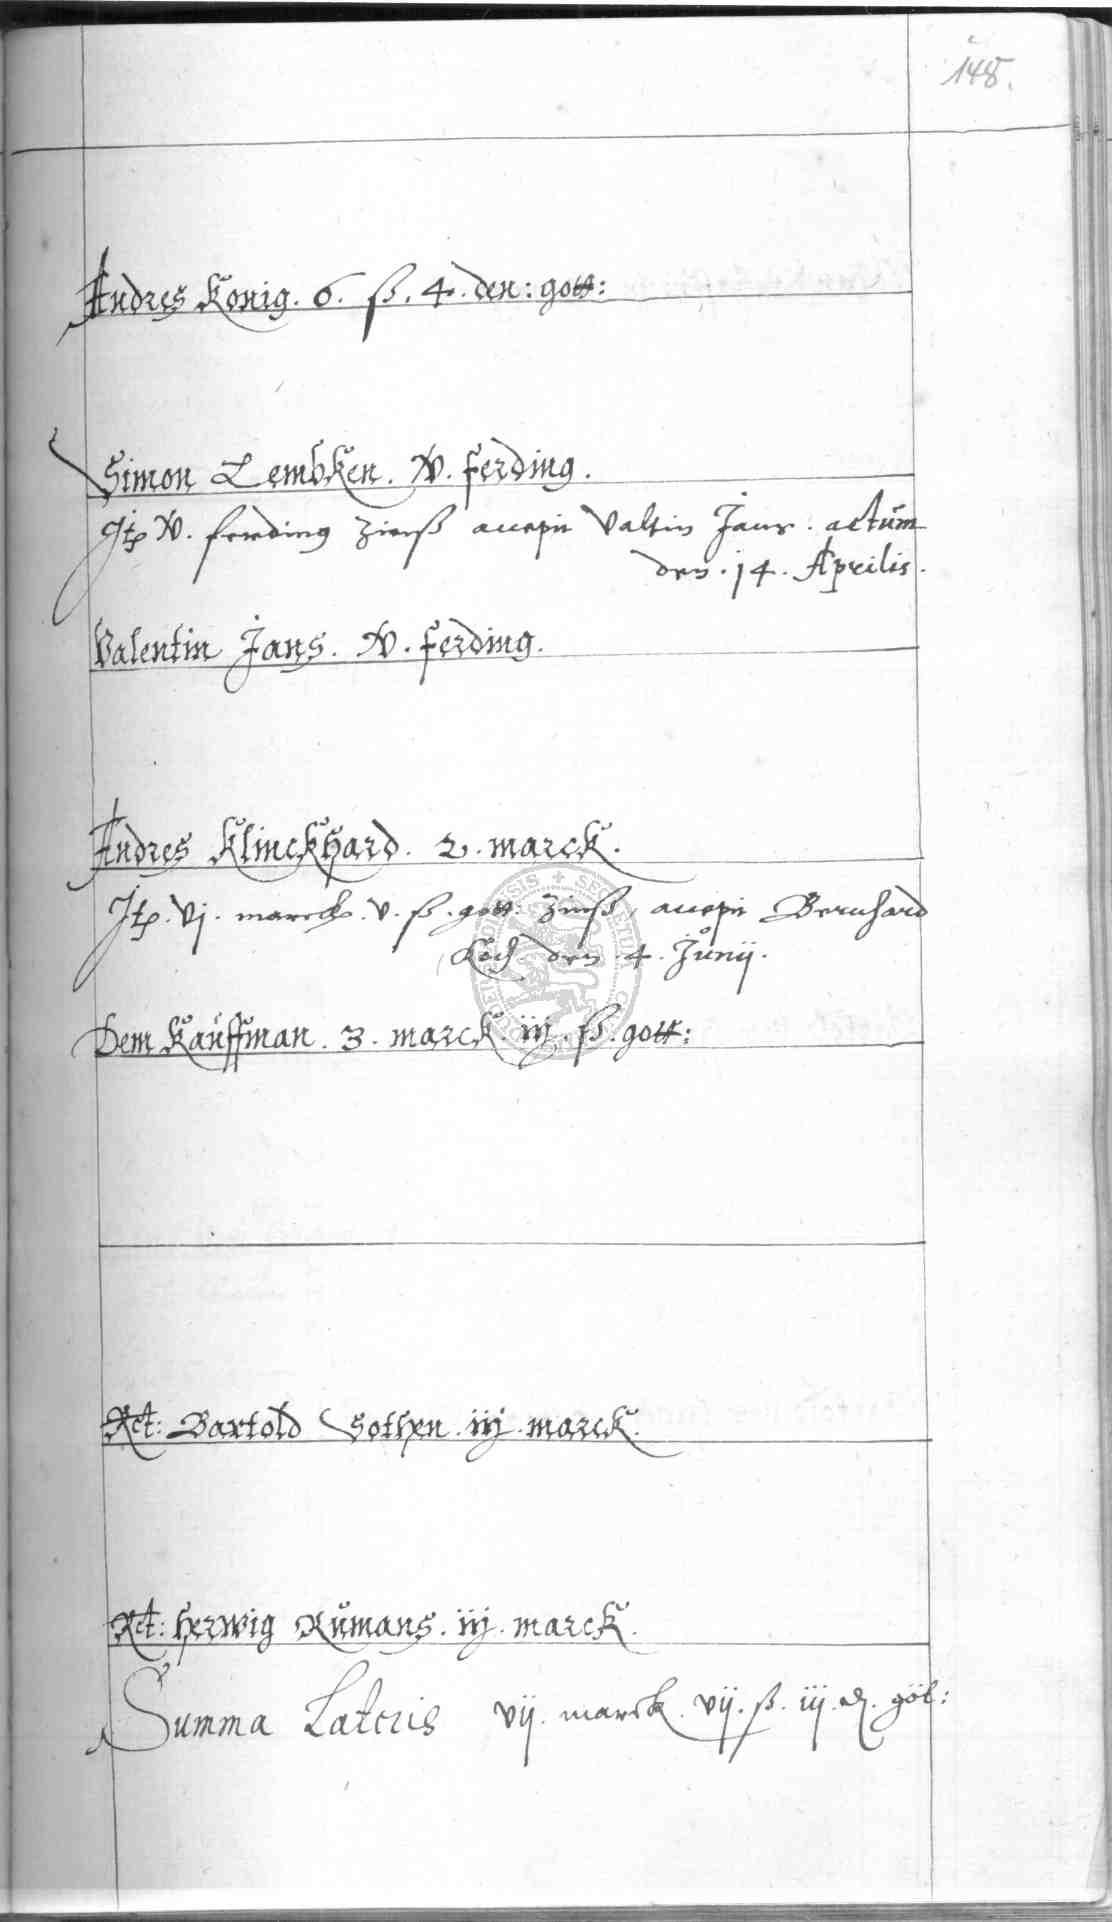 148.
Andres Konig. 6. ß. 4. den: gott:
Simon Lembken. W. ferding.
Jtp W. ferding Zienß accepit Valtin Jans. actum
den. 14. Aprilis.
Valentin Jans. W. ferding.
Andres Klinckhard. 2. marck.
Jtp. vj. marck. v. ß. gott: Zinß, accepit Bernhard
Koch den. 4. Junij.
Dem Kauffman. 3. marck. iij. ß. gott:
Rct: Bartold Sothen. iij. marck.
Rct: Herwig Rumans. iij. marck.
Summa Lateris vij. marck. vij. ß. iij. d. göt: